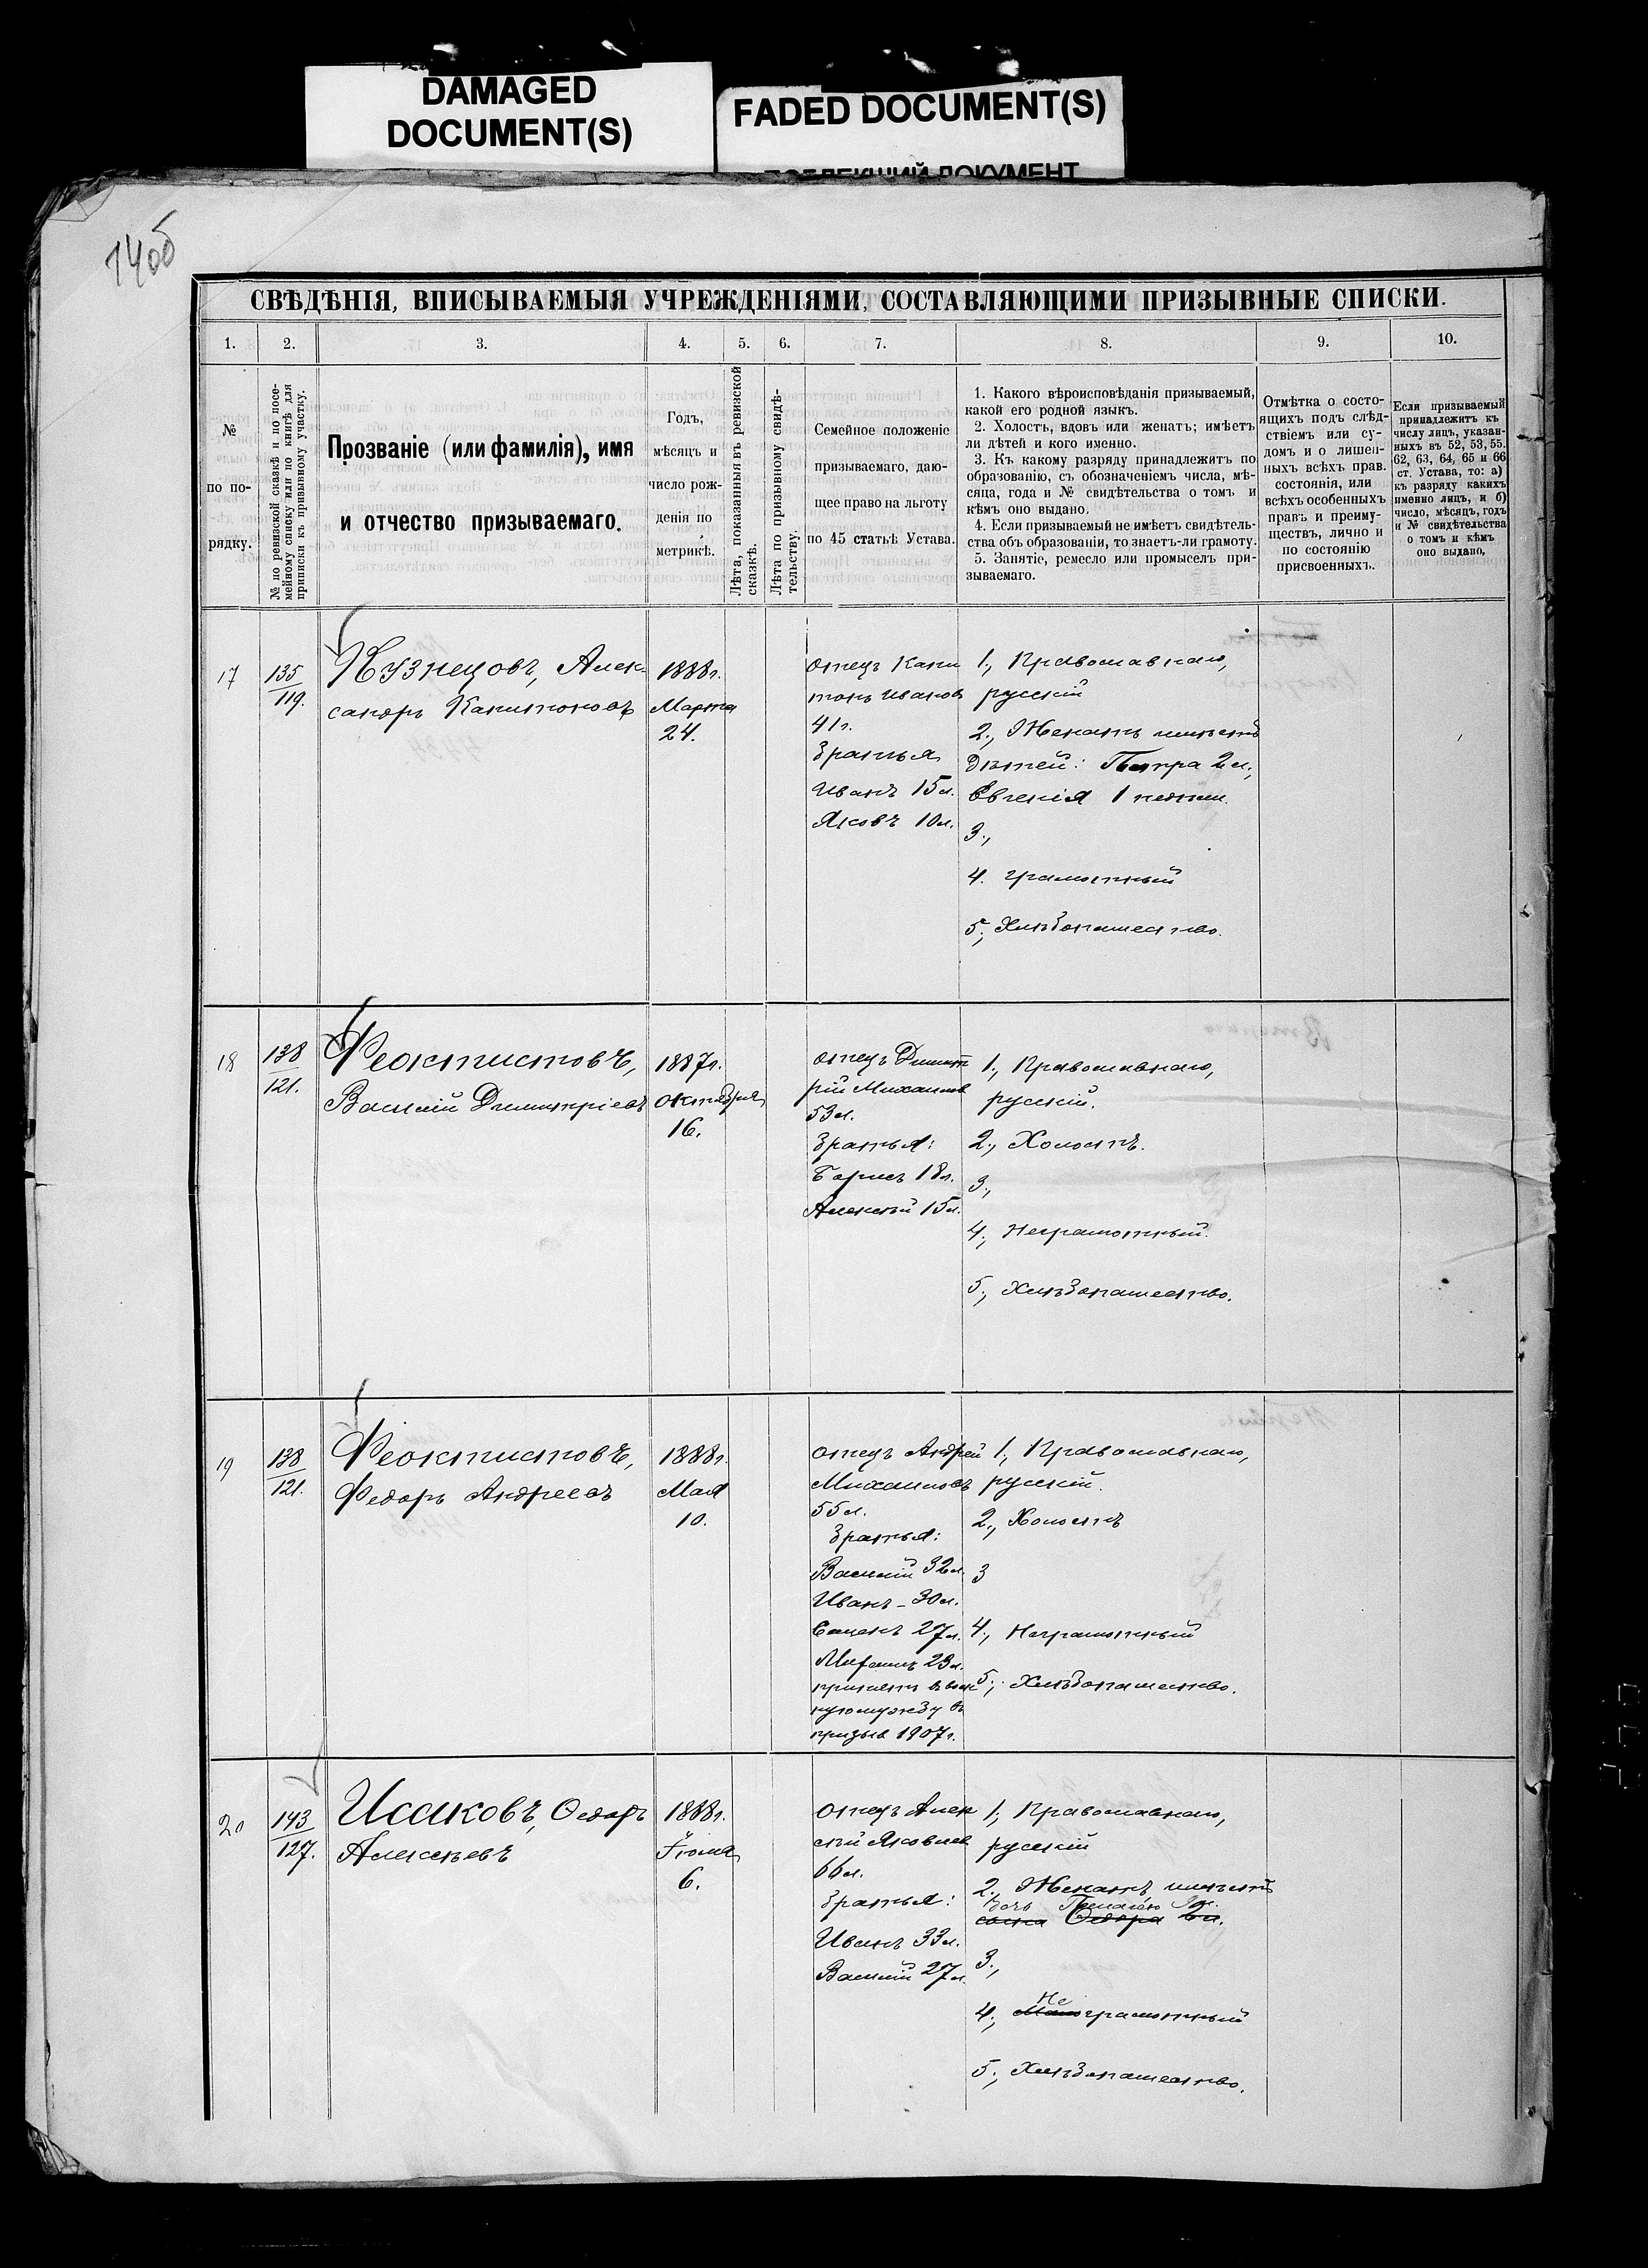 DAMAGED
DOCUMENT(S)
FADED DOCUMENT(S)
74об
СВѢДѢНІЯ, ВПИСЫВАЕМЫЯ УЧРЕЖДЕНІЯМИ, СОСТАВЛЯЮЩИМИ ПРИЗЫВНЫЕ СПИСКИ.
1. 2. 3. 4. 5. 6. 7. 8. 9. 10.
№
по по-
рядку.
№ по ревизской сказкѣ и по посе-
мейному списку или по книгѣ для
приписки къ призывному участку.
Прозваніе (или фамилія), имя
и отчество призываемаго.
Годъ,
мѣсяцъ и
число рож-
денія по
метрикѣ.
Лѣта, показанныя въ ревизской
сказкѣ.
Лѣта по призывному свидѣ-
тельству.
Семейное положеніе
призываемаго, даю-
щее право на льготу
по 45 статьѣ Устава.
1. Какого вѣроисповѣданія призываемый,
какой его родной языкъ.
2. Холостъ, вдовъ или женатъ; имѣетъ
ли дѣтей и кого именно.
3. Къ какому разряду принадлежитъ по
образованію, съ обозначеніемъ числа, мѣ-
сяца, года и № свидѣтельства о томъ и
кѣмъ оно выдано.
4. Если призываемый не имѣетъ свидѣтель-
ства объ образованіи, то знаетъ-ли грамоту.
5. Занятіе, ремесло или промыселъ при-
зываемаго.
Отмѣтка о состо-
ящихъ подъ слѣд-
ствіемъ или су-
домъ и о лишен-
ныхъ всѣхъ прав.
состоянія, или
всѣхъ особенныхъ
правъ и преиму-
ществъ, лично и
по состоянію
присвоенныхъ.
Если призываемый
принадлежитъ къ
числу лицъ, указан-
ныхъ въ 52, 53, 55.
62, 63, 64, 65 и 66
ст. Устава, то: а)
къ разряду какихъ
именно лицъ, и б)
число, мѣсяцъ, годъ
и № свидѣтельства
о томъ и кѣмъ
оно выдано.
17
135
119.
Кузнецовъ, Алек-
сандръ Капитоновъ
1888г.
Марта
24.
отецъ Капи
тонъ Иванов
41г.
Братья
Иванъ 15л.
Яковъ 10л.
1., Православнаго,
русскій
2., Женатъ имѣетъ
дѣтей: Петра 2л.,
Евгенія 1 недѣли.
3.,
4. грамотный
5., Хлѣбопашество.
18
138
121.
Феоктистовъ,
Василій Димитріевъ
1887г.
октября
16.
отецъ Димит
рій Михаилов
53л.
Братья:
Борисъ 18л.
Алексѣй 15л.
1., Православнаго,
русскій.
2., Холостъ.
3.,
4., Неграмотный.
5., Хлѣбопашество.
19
138
121.
Феоктистовъ,
Федоръ Андреевъ
1888г.
Мая
10.
отецъ Андрей
Михаиловъ
55л.
Братья:
Василій 32л.
Иванъ - 30л.
27л.
23л.
принятъ в воен
ную службу въ
призыв 1907г.
1., Православнаго,
русскій.
2., Холостъ
3
4., Неграмотный
5., Хлѣбопашество.
20
143
127.
Исаковъ, Ѳедоръ
Алексѣевъ
1888г.
Іюля
6.
отецъ Алек
сѣй Яковлев
66л.
Братья:
Иванъ 33л.
Василій 27л.
1., Православнаго,
русскій
2. Женатъ имѣетъ
дочь Пелагію
сына Ѳедора
3.,
4., Не Малограмотный
5., Хлѣбопашество.